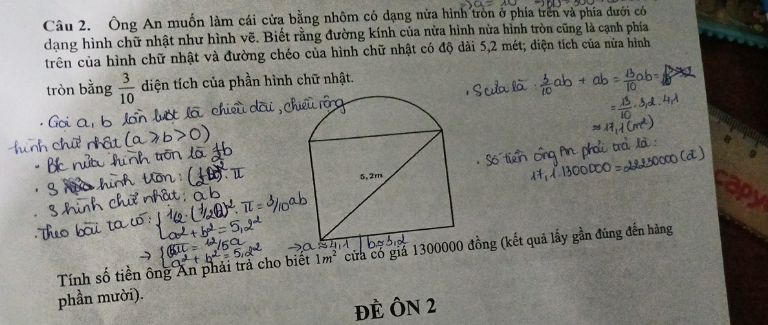 Câu 2. Ông An muốn làm cái cửa bằng nhôm có dạng nửa hình tròn ở phía trên và phía dưới có
dạng hình chữ nhật như hình vẽ. Biết rằng đường kính của nửa hình nửa hình tròn cũng là cạnh phía
trên của hình chữ nhật và đường chéo của hình chữ nhật có độ dài 5,2 mét; diện tích của nửa hình
tròn bằng 3/10 diện tích của phần hình chữ nhật.
. Gọi a, b lần lượt là chiều dài, chiều rộng
hình chữ nhật (a ≥ b > 0)
. Bk nửa hình tròn là 1/2 b
. S hình tròn: (1/2 b)². π
. S hình chữ nhật: ab
. Theo bài ta có: { 1/2 . (1/2 b)². π = 3/10 ab
a² + b² = 5,2²
→ { bπ = 12/5 a
a² + b² = 5,2²
→ a ≈ 4,1 | b ≈ 3,2
5,2m
. S cửa là: 3/10 ab + ab = 13/10 ab =
= 13/10 . 3,2 . 4,1
≈ 17,1 (m²)
. Số tiền ông An phải trả là:
17,1 . 1300000 = 22230000 (đ)
Tính số tiền ông An phải trả cho biết 1m² cửa có giá 1300000 đồng (kết quả lấy gần đúng đến hàng
phần mười).
ĐỀ ÔN 2